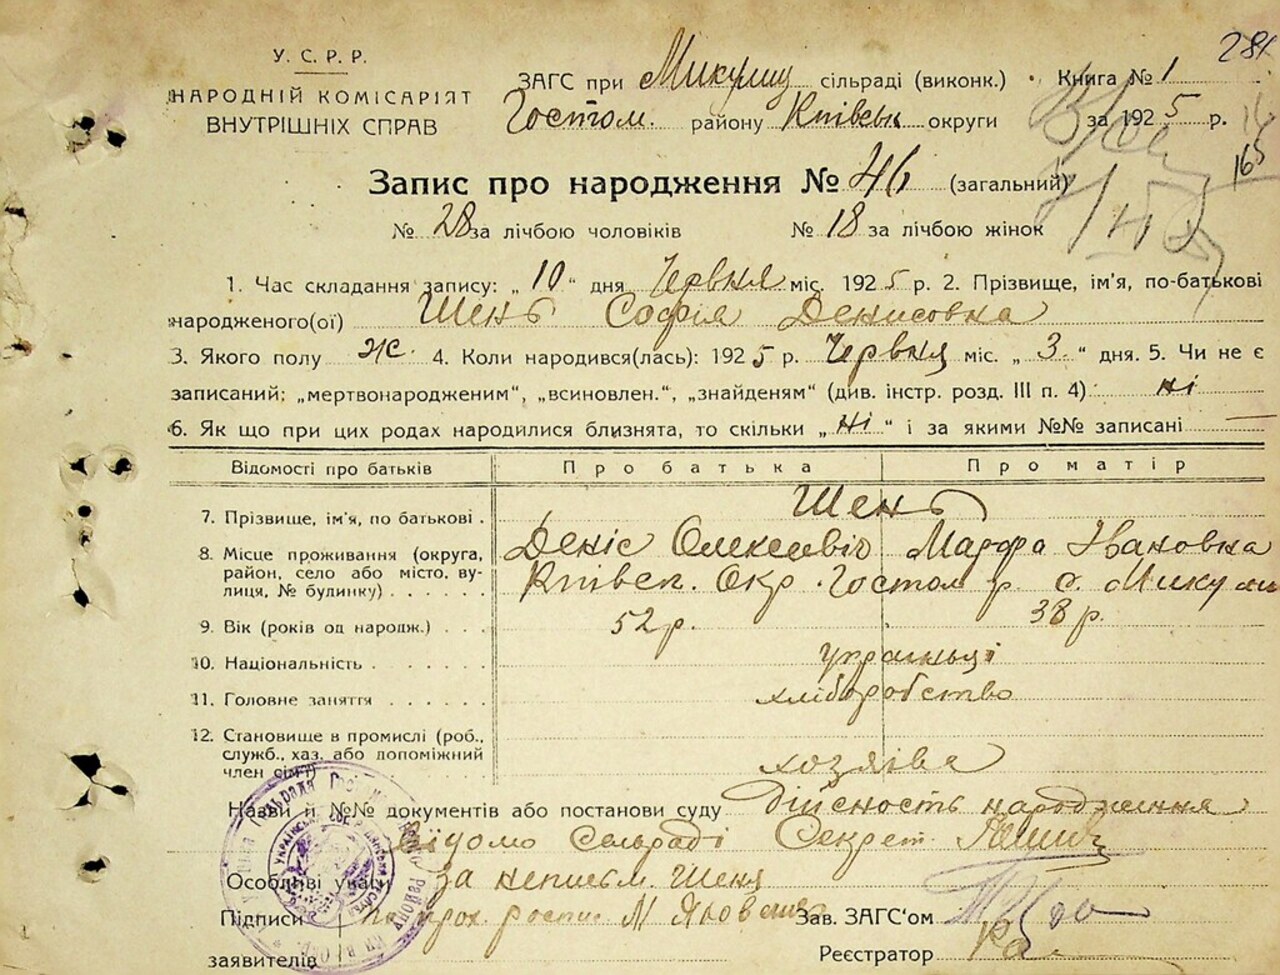 281
У. С. Р. Р.
НАРОДНІЙ КОМІСАРІЯТ
ВНУТРІШНІХ СПРАВ
ЗАГС при Микулиц сільраді (виконк.) Книга № 1
Гостом. району Київськ округи за 1925 р.
165
Запис про народження № 46 (загальний)
№ 28 за лічбою чоловіків № 18 за лічбою жінок
1. Час складання запису: „10“ дня Червня міс. 1925 р. 2. Прізвище, ім'я, по-батькові
народженого(ої) Шень Софія Денисовка
3. Якого полу ж. 4. Коли народився(лась): 1925 р. Червня міс. „3.“ дня. 5. Чи не є
записаний: „мертвонародженим“, „всиновлен.“, „знайденям“ (див. інстр. розд. III п. 4) ні
6. Як що при цих родах народилися близнята, то скільки „ні“ і за якими №№ записані —
Відомості про батьків Про батька Про матір
7. Прізвище, ім'я, по батькові . Шень
Деніс Олексевіч Марфа Івановна
8. Місце проживання (округа, район, село або місто, вулиця, № будинку) . . . . . . Київсп. Окр. Гостом р. с. Микули
9. Вік (років од народж.) . . . 52 р. 38 р.
10. Національність . . . . . . українці
11. Головне заняття . . . . . . хліборобство
12. Становище в промислі (роб.,
служб., хаз. або допоміжний
член сім'ї) хозяїва
Назви й №№ документів або постанови суду Дійсность народження
Відомо Сельраді Секрет.
Особливі уваги за неписьм. Шеня
Підписи рос М Яновська Зав. ЗАГС'ом
заявителів Реєстратор